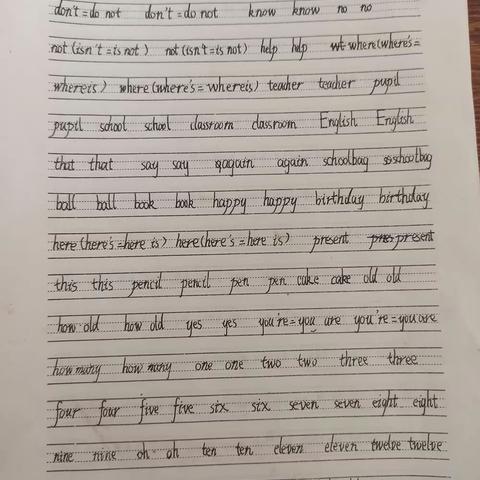 don't=do not don't=do not know know no no
not (isn't=is not) not (isn't=is not) help help wt where(where's=
whereis) where (where's=whereis) teacher teacher pupil
pupil school school classroom classroom English English
that that say say qagain again schoolbag schoolbag
ball ball book book happy happy birthday birthday
here (here's=here is) here (here's=here is) present pres present
this this pencil pencil pen pen cake cake old old
how old how old yes yes you're=you are you're=you are
how many how many one one two two three three
four four five five six six seven seven eight eight
nine nine oh oh ten ten eleven eleven twelve twelve